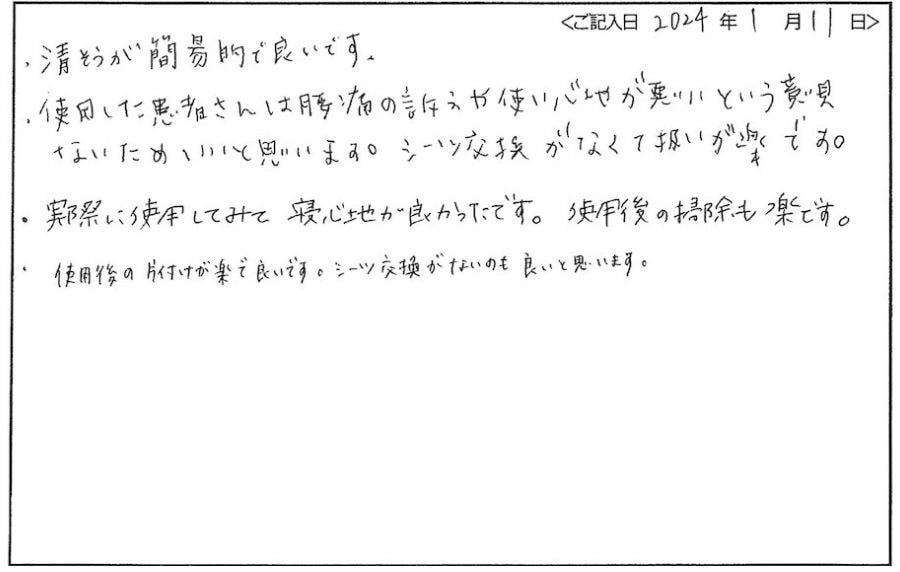 <ご記入日 2024 年 1 月 11 日>
・清そうが簡易的で良いです。
・使用した患者さんは腰痛の訴えや使い心地が悪いという意見
ないためいいと思います。シーツ交換がなくて扱いが楽です。
・実際に使用してみて 寝心地が良かったです。 使用後の掃除も楽です。
・使用後の片付けが楽で良いです。シーツ交換がないのも良いと思います。